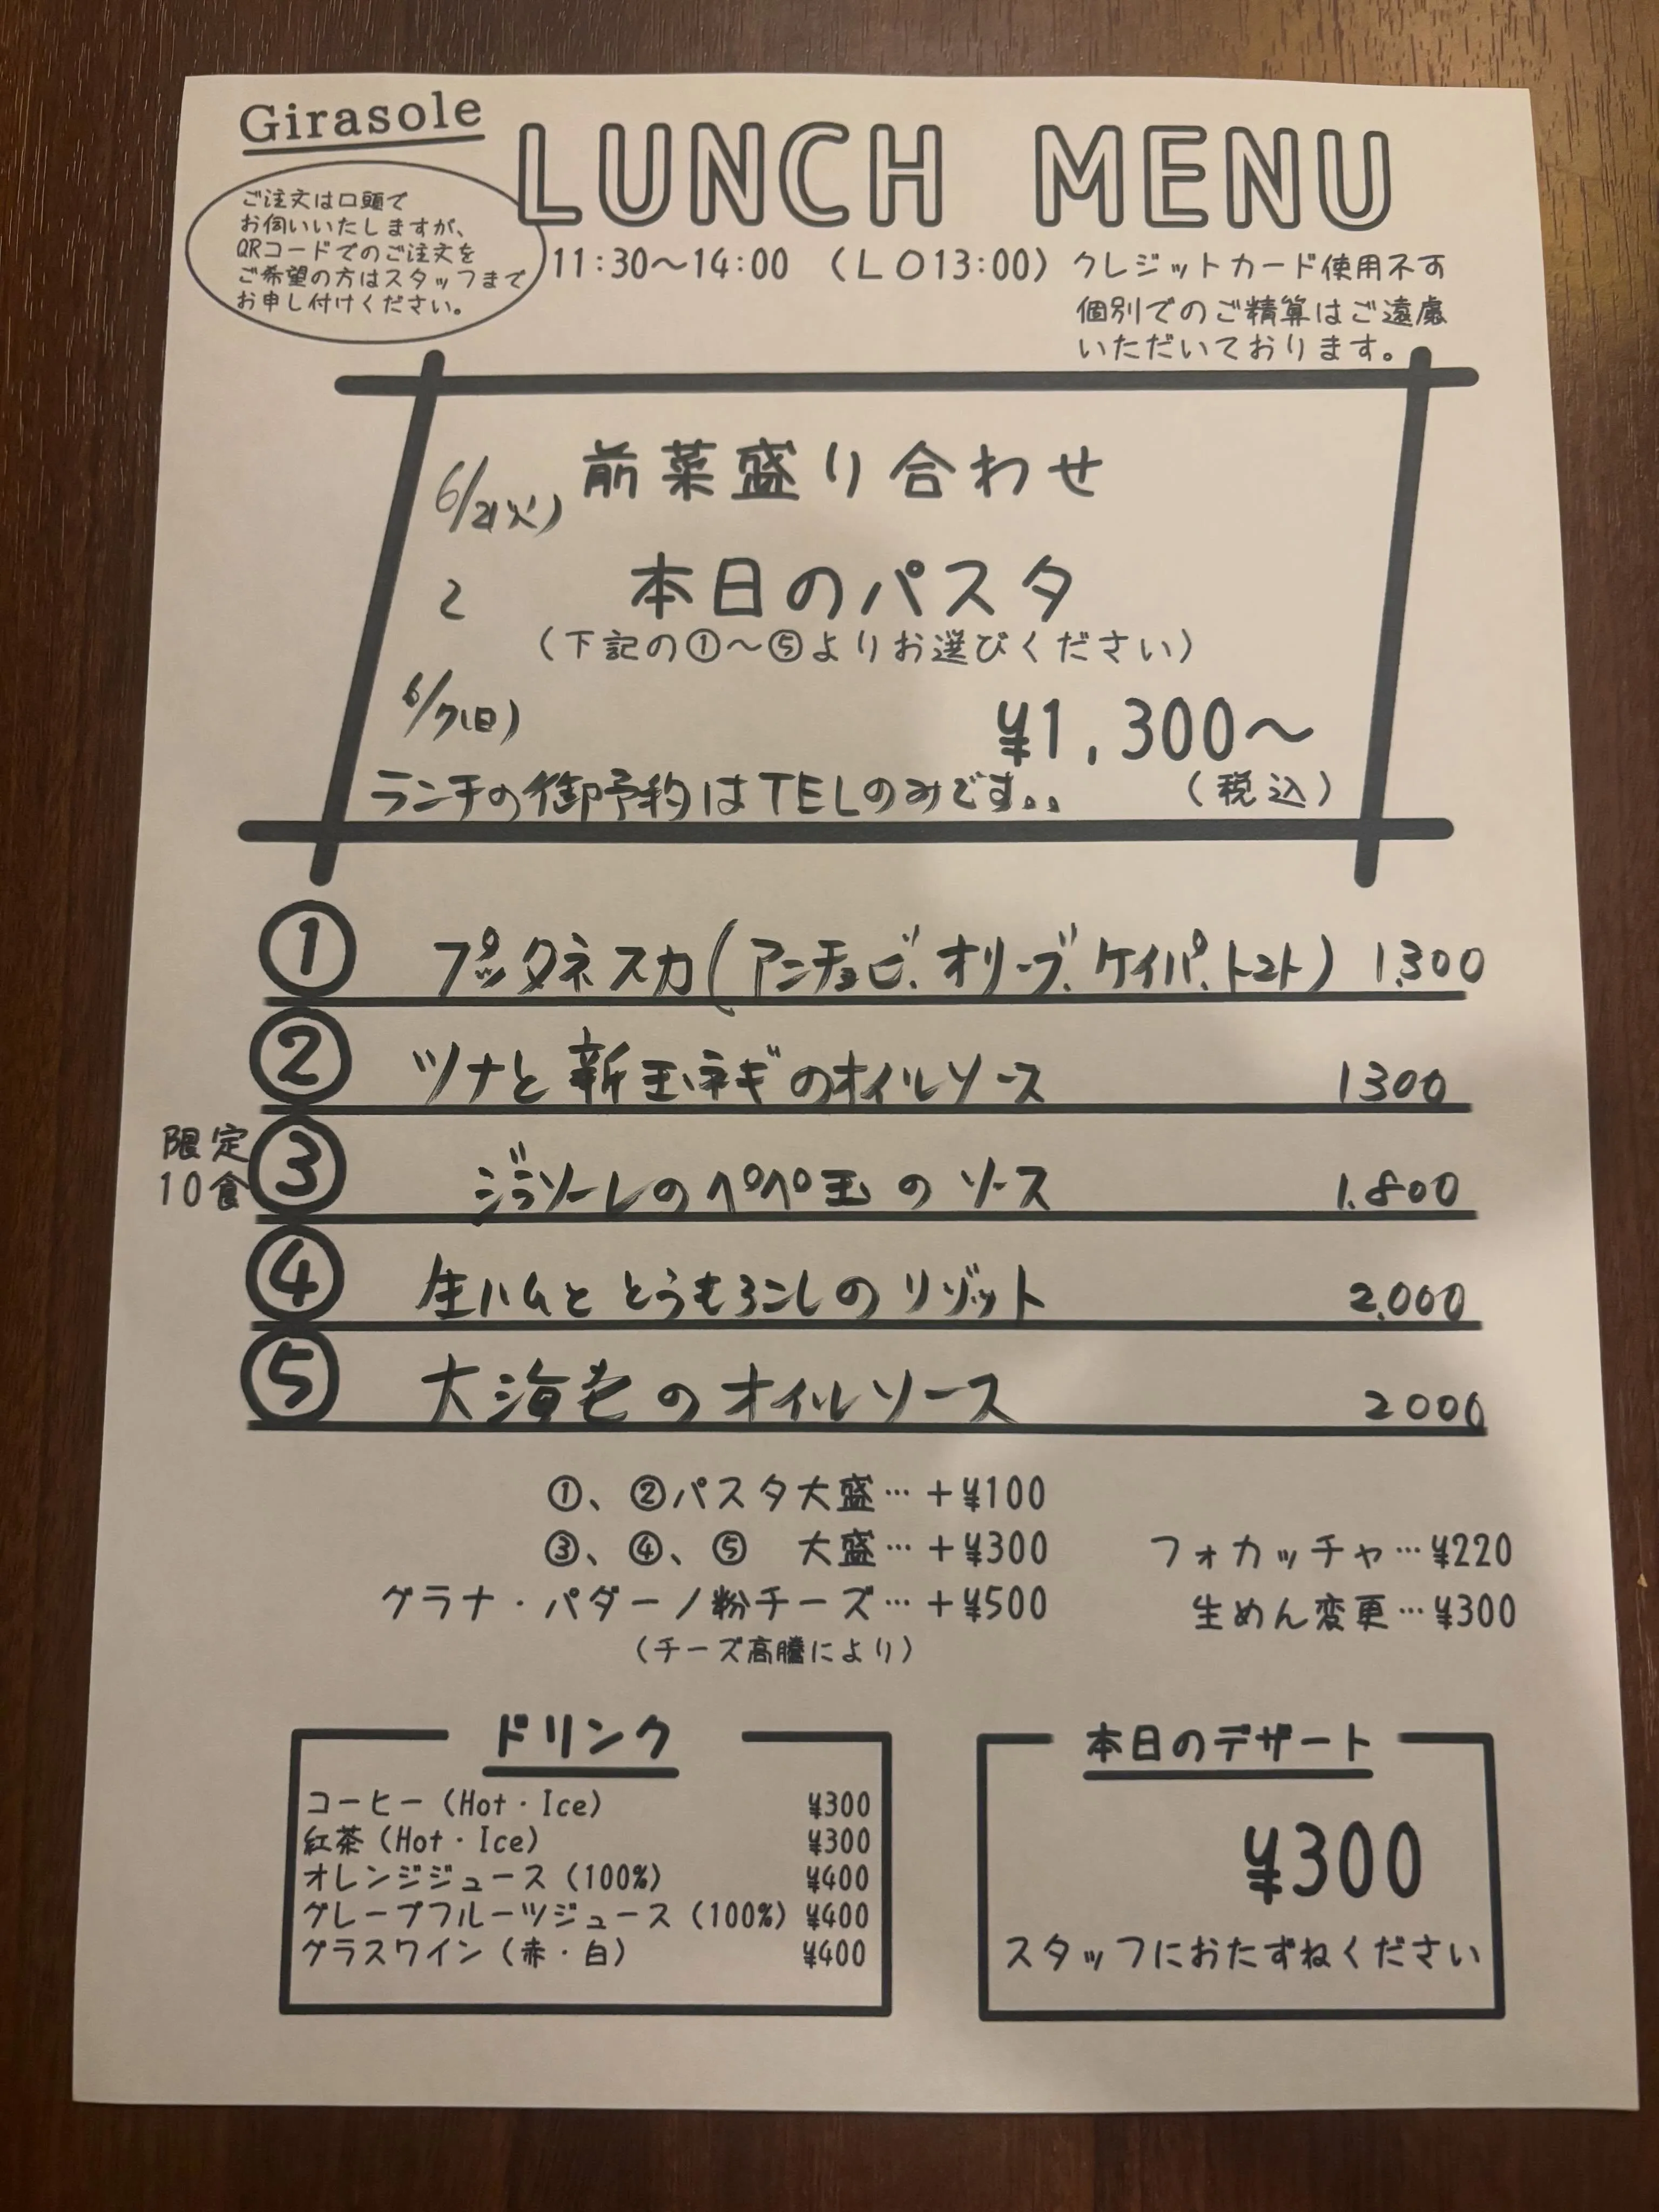 Girasole
LUNCH MENU
ご注文は口頭で
お伺いいたしますが、
QRコードでのご注文を
ご希望の方はスタッフまで
お申し付けください。
11:30～14:00 （LO13:00）クレジットカード使用不可
個別でのご精算はご遠慮
いただいております。
前菜盛り合わせ
6/2(火)
本日のパスタ
（下記の①～⑤よりお選びください）
6/7(日)
¥1,300～
（税込）
ランチの御予約はTELのみです。。
① プッタネスカ(アンチョビ、オリーブ、ケイパ、トマト) 1.300
② ツナと新玉ネギのオイルソース 1300
限定
10食
③ ジラソーレのペペ玉のソース 1.800
④ 生ハムととうもろこしのリゾット 2.000
⑤ 大海老のオイルソース 2000
①、②パスタ大盛…＋¥100
③、④、⑤ 大盛…＋¥300
グラナ・パダーノ粉チーズ…＋¥500
（チーズ高騰により）
フォカッチャ…¥220
生めん変更…¥300
ドリンク
コーヒー（Hot・Ice） ¥300
紅茶（Hot・Ice） ¥300
オレンジジュース（100%） ¥400
グレープフルーツジュース（100%）¥400
グラスワイン（赤・白） ¥400
本日のデザート
¥300
スタッフにおたずねください